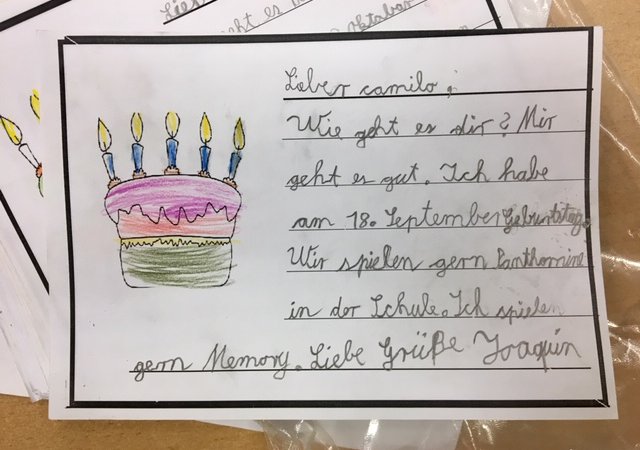 Lieber camilo,
Wie geht es dir? Mir
geht es gut. Ich habe
am 18. September Geburtstag.
Wir spielen gern Panthomine
in der Schule. Ich spielen
gern Memory. Liebe Grüße Joaquín